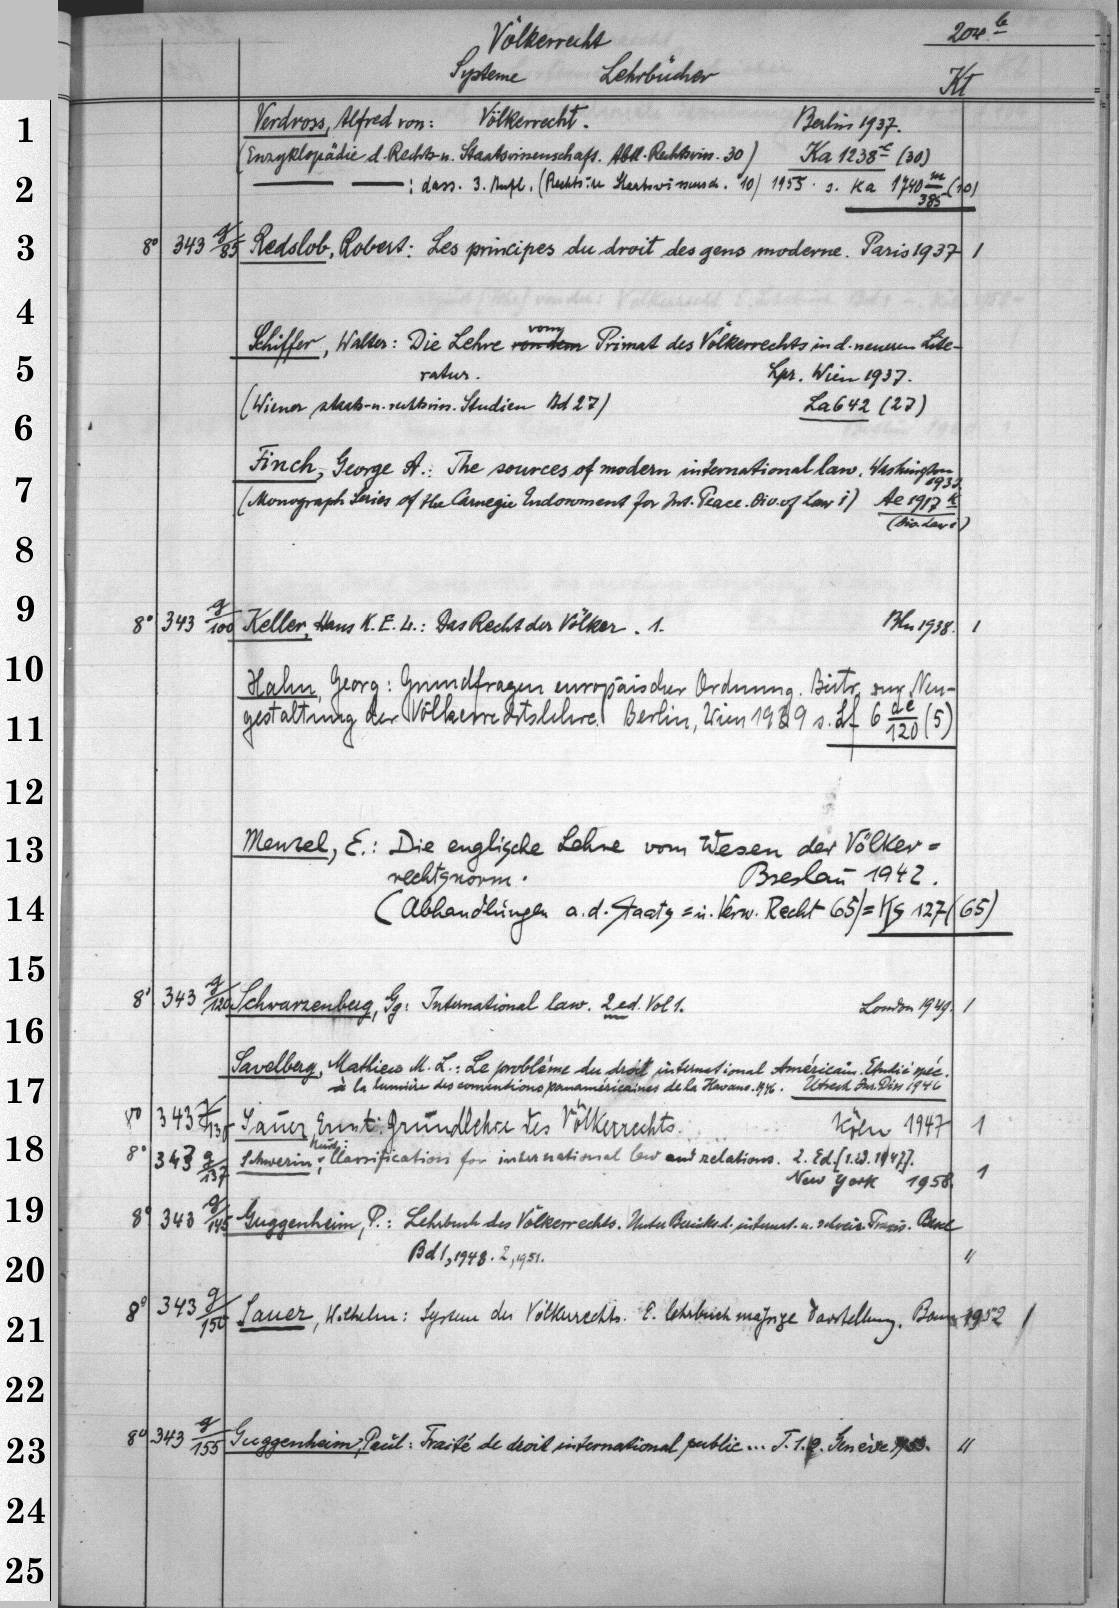 Völkerrecht 204 b
Systeme Lehrbücher Kt
1 Verdross, Alfred von: Völkerrecht. Berlin 1937.
(Enzyklopädie d. Rechts- u. Staatswissenschaft. Abt. Rechtswiss. 30) Ka 1238 c (30)
2 : dass. 3. Aufl. (Rechts- u. Staatswissensch. 10) 1955. s. Ka 1740 m/385 (10)
3 8° 343 g/85 Redslob, Robert: Les principes du droit des gens moderne. Paris 1937 1
4
Schiffer, Walter: Die Lehre von dem vom Primat des Völkerrechts in d. neueren Lite-
5 ratur. Lpz. Wien 1937.
(Wiener staats- u. rechtswiss. Studien Bd 27) La 642 (27)
6
Finch, George A.: The sources of modern international law. Washington
7 1937.
(Monograph Series of the Carnegie Endowment for Int. Peace. Div. of Law 1) Ae 1917 k
(Div. Law 1)
8
9 8° 343 g/100 Keller, Hans K. E. L.: Das Recht der Völker. 1. Bln 1938. 1
10 Hahn, Georg: Grundfragen europäischer Ordnung. Beitr. zur Neu-
11 gestaltung der Völkerrechtslehre. Berlin, Wien 1939 s. Lf 6 de/120 (5)
12
13 Menzel, E.: Die englische Lehre vom Wesen der Völker=
rechtsnorm. Breslau 1942.
14 (Abhandlungen a. d. Staats= u. Verw. Recht 65) = Kg 127 (65)
15
8° 343 g/120 Schwarzenberg, Gg: International law. 2 ed. Vol 1. London 1949. 1
16
Savelberg, Mathieu M. L.: Le problème du droit international Américain. Etudié spéc.
17 à la lumière des conventions panaméricaines de la Havane. Utrecht Jur. Diss 1946
8° 343 g/130 Sauer Ernst: Grundlehre des Völkerrechts. Köln 1947 1
18 8° 343 g/137 Schwerin, Kurt: Classification for international law and relations. 2. Ed. [1. ed. 1947].
New York 1958. 1
19 8° 343 g/145 Guggenheim, P.: Lehrbuch des Völkerrechts. Unter Berücks. d. internat. u. schweiz. Praxis. Basel
20 Bd 1, 1948. 2, 1951. "
21 8° 343 g/150 Sauer, Wilhelm: System des Völkerrechts. E. lehrbuchmäßige Darstellung. Bonn 1952 1
22
23 8° 343 g/155 Guggenheim, Paul: Traité de droit international public... T. 1. 2. Genève 1953. "
24
25